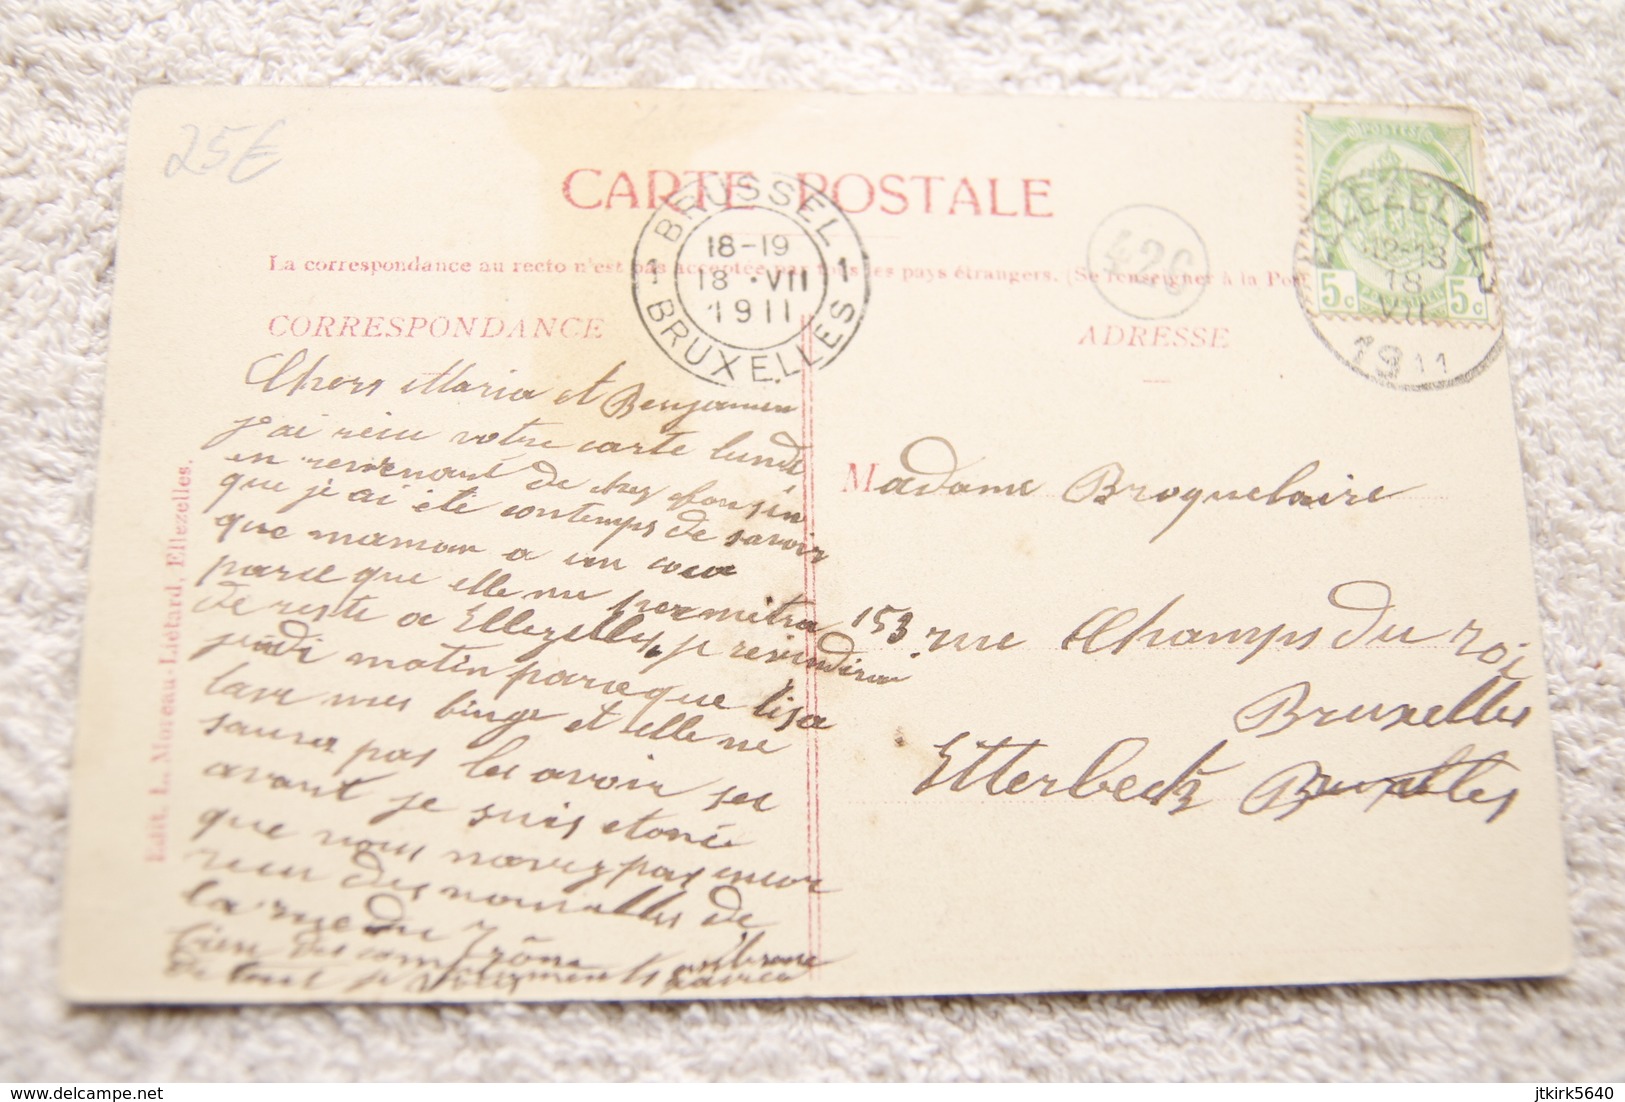 25€
CARTE POSTALE
La correspondance au recto n'est pas acceptée par tous les pays étrangers. (Se renseigner à la Pos
CORRESPONDANCE
BRUSSEL
1 1
18-19
18 · VII
1911
BRUXELLES
426
POSTES
5c 5c
ELLEZELLES
12-13
18
VII
1911
ADRESSE
Chers Maria et Benjamin
j'ai reçu votre carte lundi
en revenant de chez cousin
que j'ai été contemps de savoir
que maman a un
parce que elle me permetra
de reste a Ellezelles, je reviendrai
jeudi matin parceque lisa
lave mes linge et elle ne
saura pas les avoir sec
avant je suis etonée
que vous navez pas encor
reçu des nouvelles de
la rue du Trône
bien des compliments
de tout
Edit. L. Moreau-Liétard, Ellezelles.
Madame Broquelaire
153 rue Champs du roi
Bruxelles
Etterbeck Bruxelles
delcampe.net
jtkirk5640